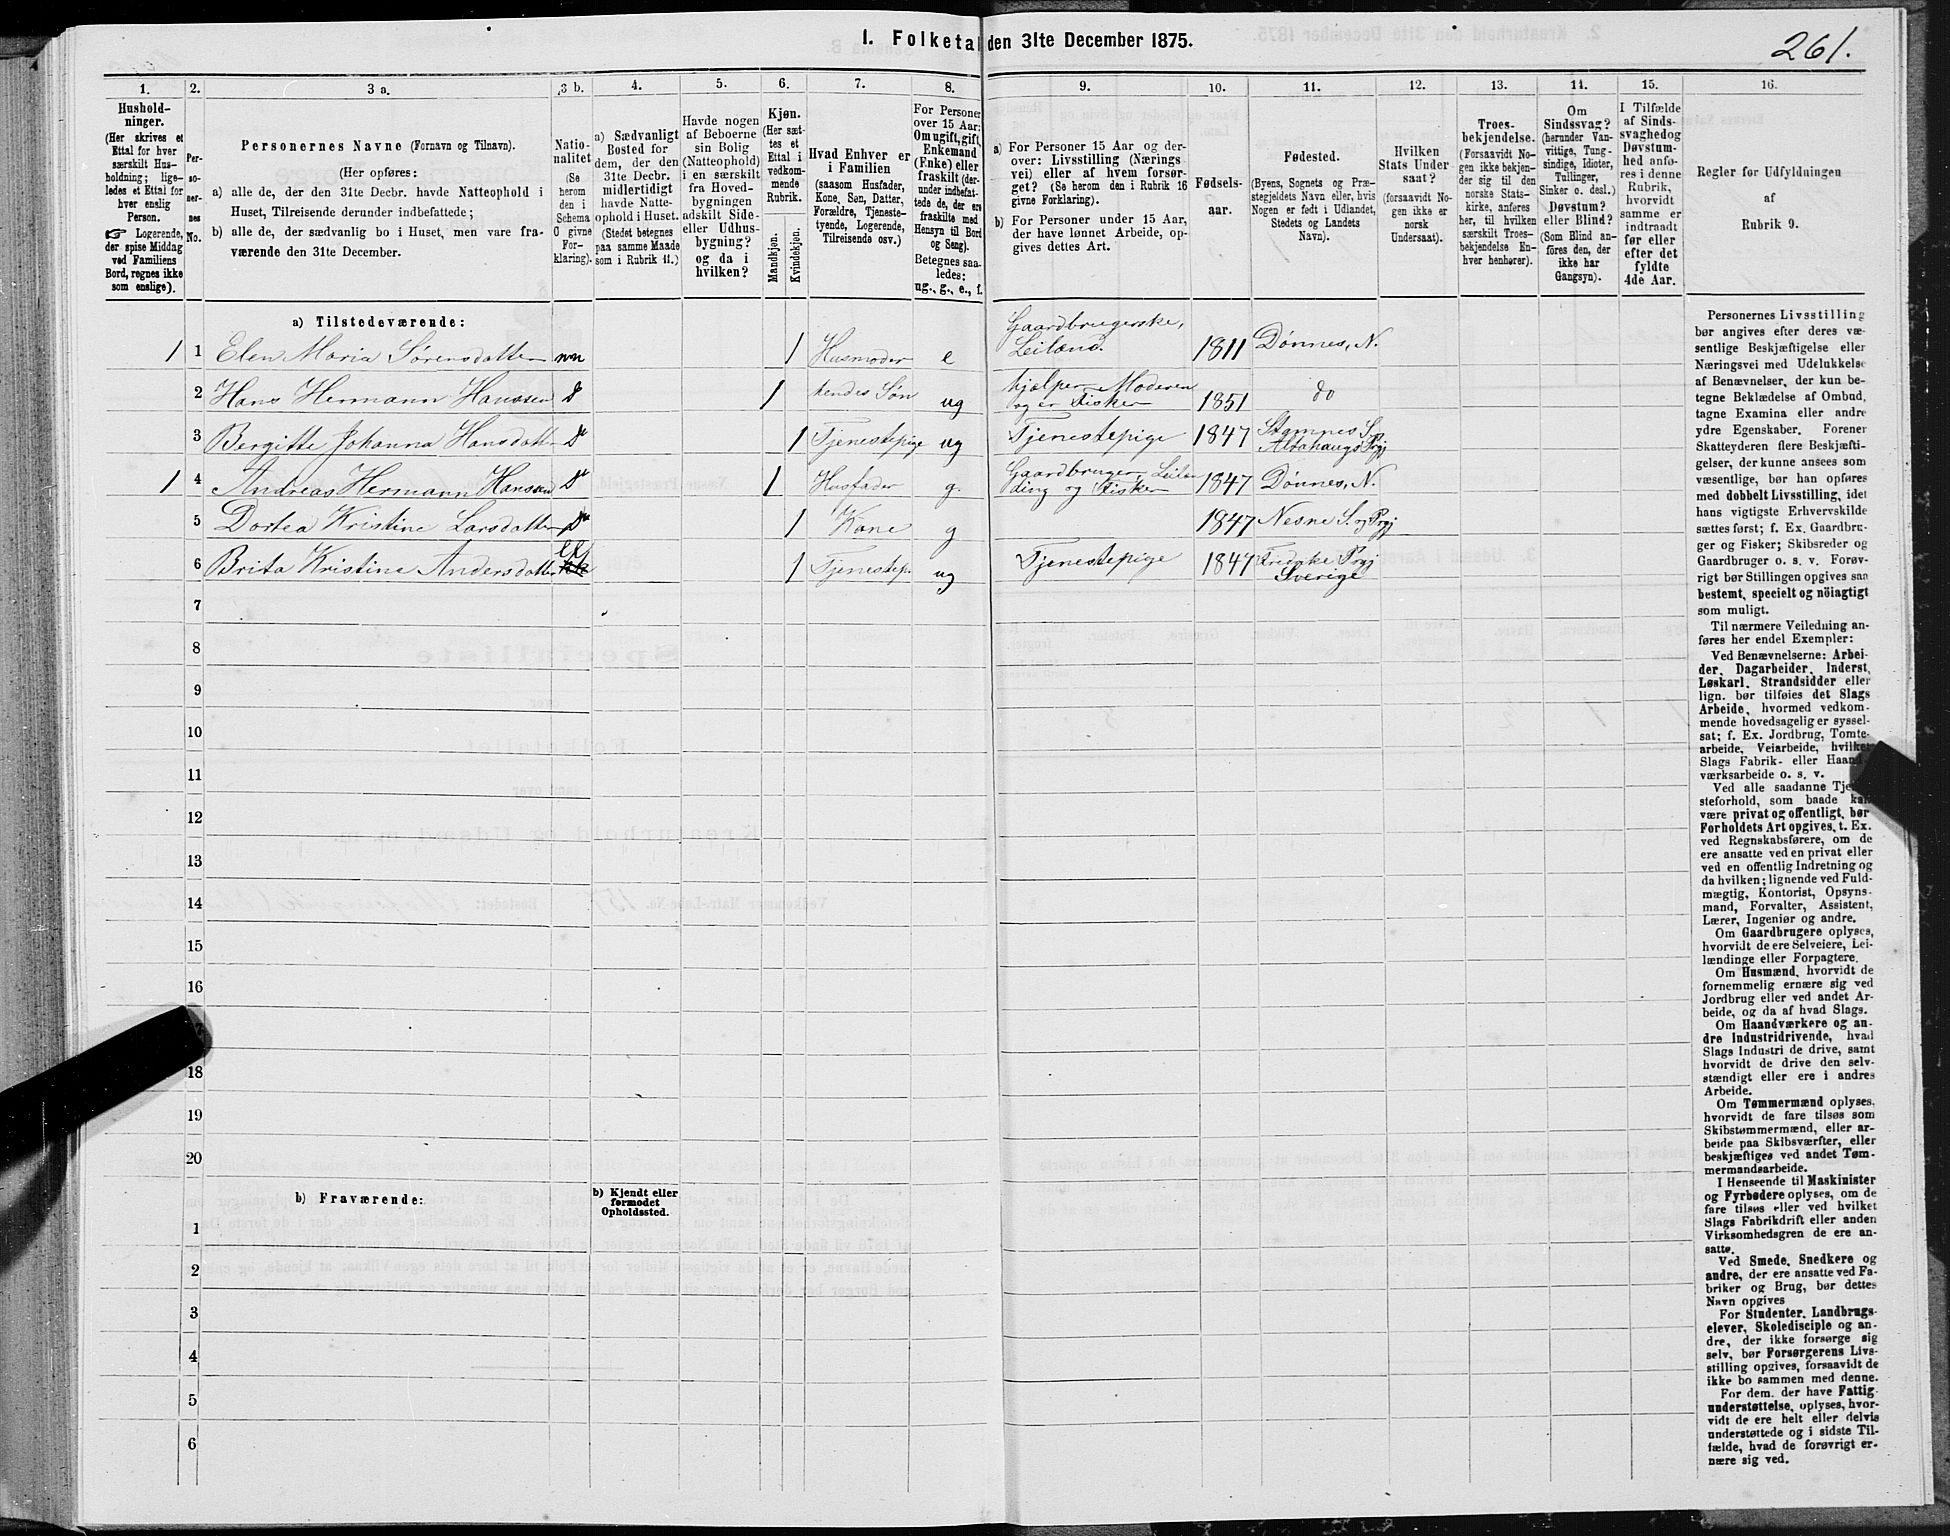 I. Folketal den 31te December 1875.
261.
1.
2.
3 a.
3 b.
4.
5.
6.
7.
8.
9.
10.
11.
12.
13.
14.
15.
16.
Hushold-
ninger.
(Her skrives et
Ettal for hver
særskilt Hus-
holdning; lige-
ledes et Ettal for
hver enslig
Person.
☞ Logerende,
der spise Middag
ved Familiens
Bord, regnes ikke
som enslige).
Per-
so-
ner-
nes
No.
Personernes Navne (Fornavn og Tilnavn).
(Her opføres:
a) alle de, der den 31te Decbr. havde Natteophold i
Huset, Tilreisende derunder indbefattede;
b) alle de, der sædvanlig bo i Huset, men vare fra-
værende den 31te December.
Natio-
nalitet
(Se
herom
den i
Schema
O givne
For-
klaring).
a) Sædvanligt
Bosted for
dem, der den
31te Decbr.
midlertidigt
havde Natte-
ophold i Huset.
(Stedet betegnes
paa samme Maade
som i Rubrik 11.)
Havde nogen
af Beboerne
sin Bolig
(Natteophold)
i en særskilt
fra Hoved-
bygningen
adskilt Side-
eller Udhus-
bygning?
og da i
hvilken?
Kjøn.
(Her sæt-
tes et
Ettal i
vedkom-
mende
Rubrik.
Mandkjøn.
Kvindekjøn.
Hvad Enhver er
i Familien
(saasom Husfader,
Kone, Søn, Datter,
Forældre, Tjeneste-
tyende, Logerende,
Tilreisende osv.)
For Personer
over 15 Aar:
Om ugift, gift,
Enkemand
(Enke) eller
fraskilt (der-
under indbefat-
tede de, der ere
fraskilte med
Hensyn til Bord
og Seng).
Betegnes saa-
ledes:
ug., g., e., f.
a) For Personer 15 Aar og der-
over: Livsstilling (Nærings-
vei) eller af hvem forsør-
get? (Se herom den i Rubrik 16
givne Forklaring).
b) For Personer under 15 Aar,
der have lønnet Arbeide, op-
gives dettes Art.
Fødsels-
aar.
Fødested.
(Byens, Sognets og Præ-
stegjeldets Navn eller, hvis
Nogen er født i Udlandet,
Stedets og Landets
Navn).
Hvilken
Stats Under-
saat?
(forsaavidt No-
gen ikke er
norsk
Undersaat).
Troes-
bekjendelse.
(Forsaavidt No-
gen ikke bekjen-
der sig til den
norske Stats-
kirke, anføres
her, til hvilken
særskilt Troes-
bekjendelse En-
hver henhører).
Om
Sindssvag?
(herunder Van-
vittige, Tung-
sindige, Idioter,
Tullinger,
Sinker o. desl.)
Døvstum?
eller Blind?
(Som Blind an-
føres den, der
ikke har
Gangsyn).
I Tilfælde
af Sinds-
svaghed og
Døvstum-
hed anfø-
res i denne
Rubrik,
hvorvidt
samme er
indtraadt
før eller
efter det
fyldte
4de Aar.
Regler for Udfyldningen
af
Rubrik 9.
a) Tilstedeværende:
1 1 Elen Maria Sørensdatter nn 1 Husmoder e Gaardbrugerske, Leiland. 1811 Dønnes, N.
2 Hans Hermann Hanssen d 1 hendes Søn ug hjælper Moderen og er Fisker 1851 do
3 Bergitte Johanna Hansdatter d 1 Tjenestepige ug Tjenestepige 1847 Stamnes S. Alstahaugs Prgj
1 4 Andreas Hermann Hanssen d 1 Husfader g. Gaardbruger, Leilænding og Fisker 1847 Dønnes, N.
5 Dortea Kristine Larsdatter d 1 Kone g 1847 Nesne S. og Prgj
6 Brita Kristine Andersdatter 1 Tjenestep. ug Tjenestepige 1847 Prgj Sverige
7
8
9
10
11
12
13
14
15
16
18
19
20
b) Fraværende:
b) Kjendt eller
formodet
Opholdssted.
1
2
3
4
5
6
Personernes Livsstilling
bør angives efter deres væ-
sentlige Beskjæftigelse eller
Næringsvei med Udelukkelse
af Benævnelser, der kun be-
tegne Beklædelse af Ombud,
tagne Examina eller andre
ydre Egenskaber. Forener
Skatteyderen flere Beskjæfti-
gelser, der kunne ansees som
væsentlige, bør han opføres
med dobbelt Livsstilling, idet
hans vigtigste Erhvervskilde
sættes først; f. Ex. Gaardbru-
ger og Fisker; Skibsreder og
Gaardbruger o. s. v. Forøv-
rigt bør Stillingen opgives saa
bestemt, specielt og nöiagtigt
som muligt.
Til nærmere Veiledning an-
føres her endel Exempler:
Ved Benævnelserne: Arbei-
der, Dagarbeider, Inderst,
Løskarl, Strandsidder eller
lign. bør tilføies det Slags
Arbeide, hvormed vedkom-
mende hovedsagelig er syssel-
sat; f. Ex. Jordbrug, Tomte-
arbeide, Veiarbeide, hvilket
Slags Fabrik- eller Haand-
værksarbeide o. s. v.
Ved alle saadanne Tje-
steforhold, som baade kan
være privat og offentligt, bør
Forholdets Art opgives, t. Ex.
ved Regnskabsførere, om de
ere ansatte ved en privat eller
ved en offentlig Indretning og
da hvilken; lignende ved Fuld-
mægtig, Kontorist, Opsyns-
mand, Forvalter, Assistent,
Lærer, Ingeniør og andre.
Om Gaardbrugere oplyses,
hvorvidt de ere Selveiere, Lei-
lændinge eller Forpagtere.
Om Husmænd, hvorvidt de
fornemmelig ernære sig ved
Jordbrug eller ved andet Ar-
beide, og da af hvad Slags.
Om Haandværkere og an-
dre Industridrivende, hvad
Slags Industri de drive, samt
hvorvidt de drive den selv-
stændigt eller ere i andres
Arbeide.
Om Tømmermænd oplyses,
hvorvidt de fare tilsøs som
Skibstømmermænd, eller ar-
beide paa Skibsværfter, eller
beskjæftiges ved andet Tøm-
mermandsarbeide.
I Henseende til Maskinister
og Fyrbødere oplyses, om de
fare tilsøs eller ved hvilket
Slags Fabrikdrift eller anden
Virksomhedsgren de ere an-
satte.
Ved Smede, Snedkere og
andre, der ere ansatte ved Fa-
briker og Brug, bør dettes
Navn opgives
For Studenter, Landbrugs-
elever, Skoledisciple og an-
dre, der ikke forsørge sig
selv, bør Forsørgerens Livs-
stilling opgives, forsaavidt de
ikke bo sammen med denne.
For dem, der have Fattig-
understøttelse, oplyses, hvor-
vidt de ere helt eller delvis
understøttede og i sidste Til-
fælde, hvad de forøvrigt er-
nære sig ved.